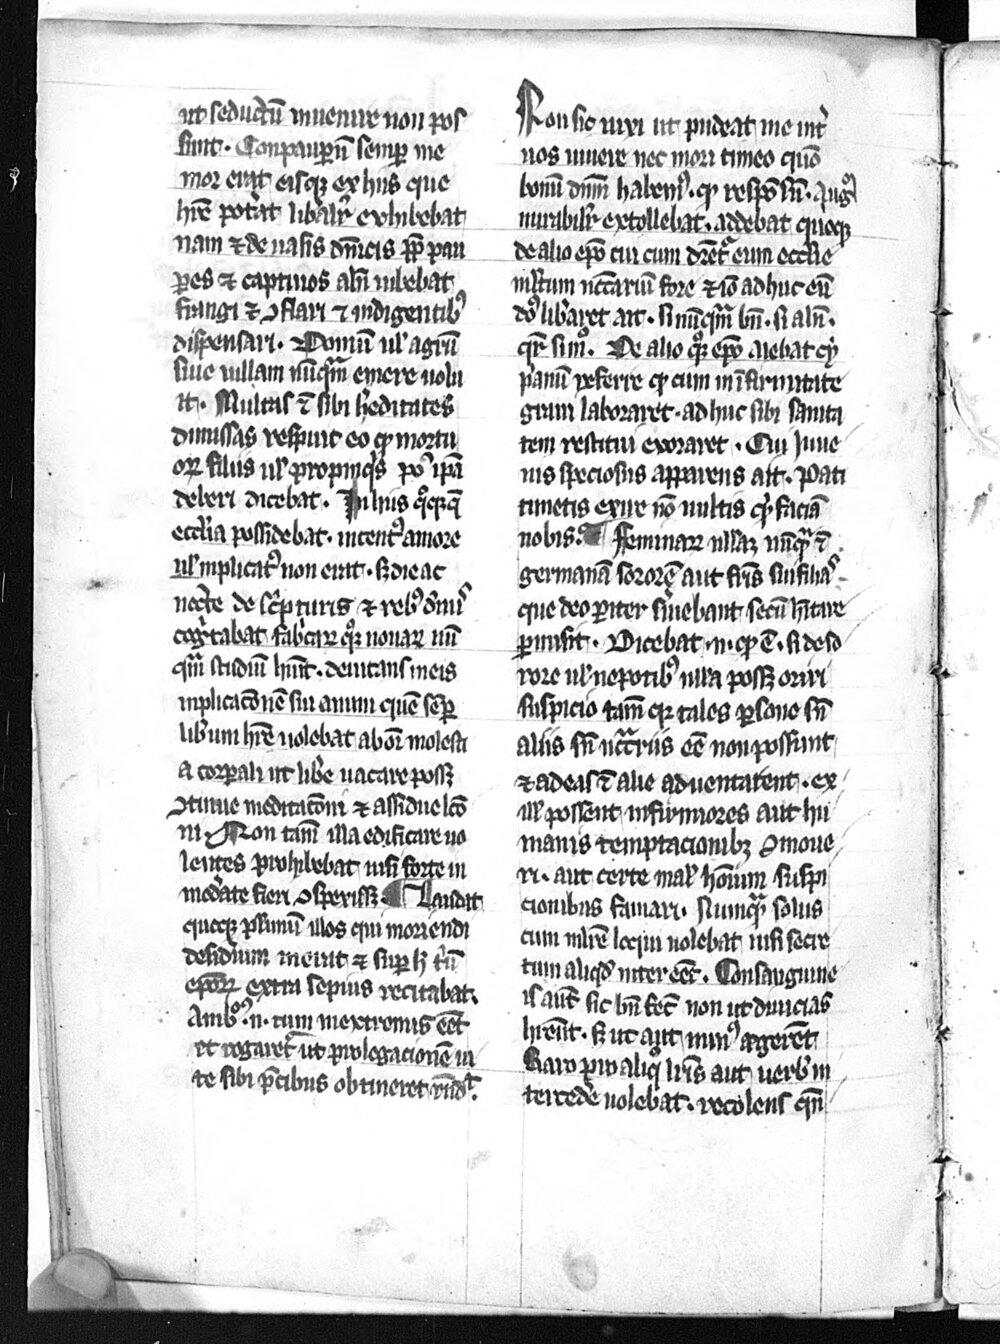 ut seductū inuenire non pos
sint. Conpauperū semper me
mor erat eisque ex hiis que
hr̄e poterat libalr̄ exhibebat
nam ⁊ de uasis dn̄icis ꝓp̄ pau
peres ⁊ captiuos aln̄ iubebat
frangi ⁊ ꝯflari ⁊ indigentibꝰ
dispensari. Domū ul' agrū
siue uillam nūqm̄ emere uolu
it. Multas ē sibi h'editates
dimissas respuit eo ꝙ mortu
oꝝ filiis ul' propinqis poꝰ ip̄a
deberi dicebat. In hiis qͦqꝫ q̄
eccl'ia possidebat. intentꝰ amore
ul' implicatꝰ non erat. sꝫ die ac
nocte de sc'pturis ⁊ rebꝰ
cogitabat fab'caꝝ qͦꝫ nouaꝝ nū
qm̄ studiū hūit. deuitans in eis
inplicac̄onē sui animi quē semꝑ
lib'um hr̄e uolebat ab om̄i molesti
a corporali ut libe uacare possꝫ
ꝯtinue meditac̄oni ⁊ assidue lc̄o
ni. Non tam̄ illa edificare uo
lentes prohibebat nisi forte in
mod'ate fieri ꝯsperissꝫ ¶ Laudat
quoqꝫ plꝛimū illos qui moriendi
desiderium inerat ⁊ super h̄ t'ū
ep̄oꝝ exēpla sepius recitabat.
Ambꝰ .n. cum in extremis eēt
et rogaret' ut prolōgacionē ui
te sibi p̄cibus obtineret rn̄d'.
Non sic uixi ut pudeat me int'
uos uiuere nec mori timeo quō
bonū dn̄m habemꝰ. ꝙ respōsū. Augꝰ
mirabilr̄ extollebat. addebat quoqꝫ
de alio ep̄o cui cum dr̄et' eum eccl'ie
ml'tum ncc̄ariū fore ⁊ iō adhuc eū
dꝰ lib'aret ait. si nūqm̄ bn̄. si aln̄.
qr̄ si mͦ. De alio qͦꝫ ep̄o aiebat cy
p'anū referre ꝙ cum in īfirmitate
graui laboraret. adhuc sibi sanita
tem restitui exoraret. Cui iuue
nis speciosus apparens ait. Pati
timetis exire nō uultis qͥ faciā
nobis. ¶ Feminaꝝ ullaꝫ nūqͣ ē
germanā sororē aut fr̄is sui filiaꝰ
que deo pariter s'uiebant secū h'itare
permisit. Dicebat .n. ꝙ ⁊ si de so
rore ul' nepotibꝰ nulla possꝫ oriri
suspicio tam̄ qꝛ tales persone sn̄
aliis sn̄ ncc̄ariis eē non possunt
⁊ ad eas ē alie aduentarent. ex
ill' possent infirmiores aut hu
manis temptacionibꝫ ꝯmoue
ri. aut certe mal' hoīum suspi
cionibus famari. Numqͣ solus
cum mlr̄e loqui uolebat nisi secre
tum aliqd' interēet. Consanguine
is aut̄ sic bn̄ fec̄ non ut diuicias
hr̄ent. sꝫ ut aut minꝰ egerent
Raro pro aliqͦ lr̄is aut uerb' in
tercede uolebat. recolens